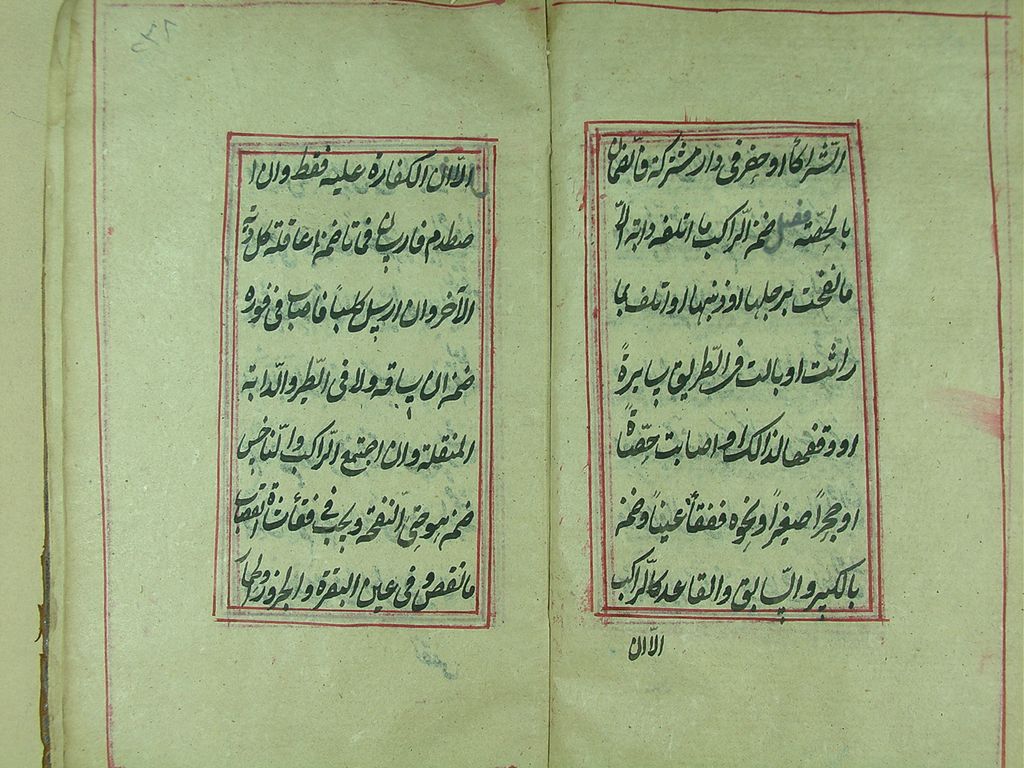 الشركاء او حفر فى دار مشتركة فالضمان
بالحصّة فصل ضمن الرّاكب ما اتلفه دابته الّا
ما نفحت برجلها او ذنبها او اتلف بما
راثت او بالت فى الطّريق سايرةً
او وقفها لذالك او اصابت حصاةً
او حجراً صغيراً و نحوه ففقأت عيناً و ضمن
بالكبير و السّايق و القاعد كالرّاكب
الاّ ان
الاّ ان الكفارة عليه فقط و ان ا
صطدم فارسان فماتا ضمن عاقلة كل دية
الآخر و ان ارسل كلباً فاصاب فى فوره
ضمن ان ساقه و لا فى الطّير و الدّابة
المنفلتة و ان اجتمع الرّاكب و النّاخس
ضمن هو حتى النّفحة و يجب فى فقأ شاة القصاب
ما نقص و فى عين البقرة و الجزور و الحمار